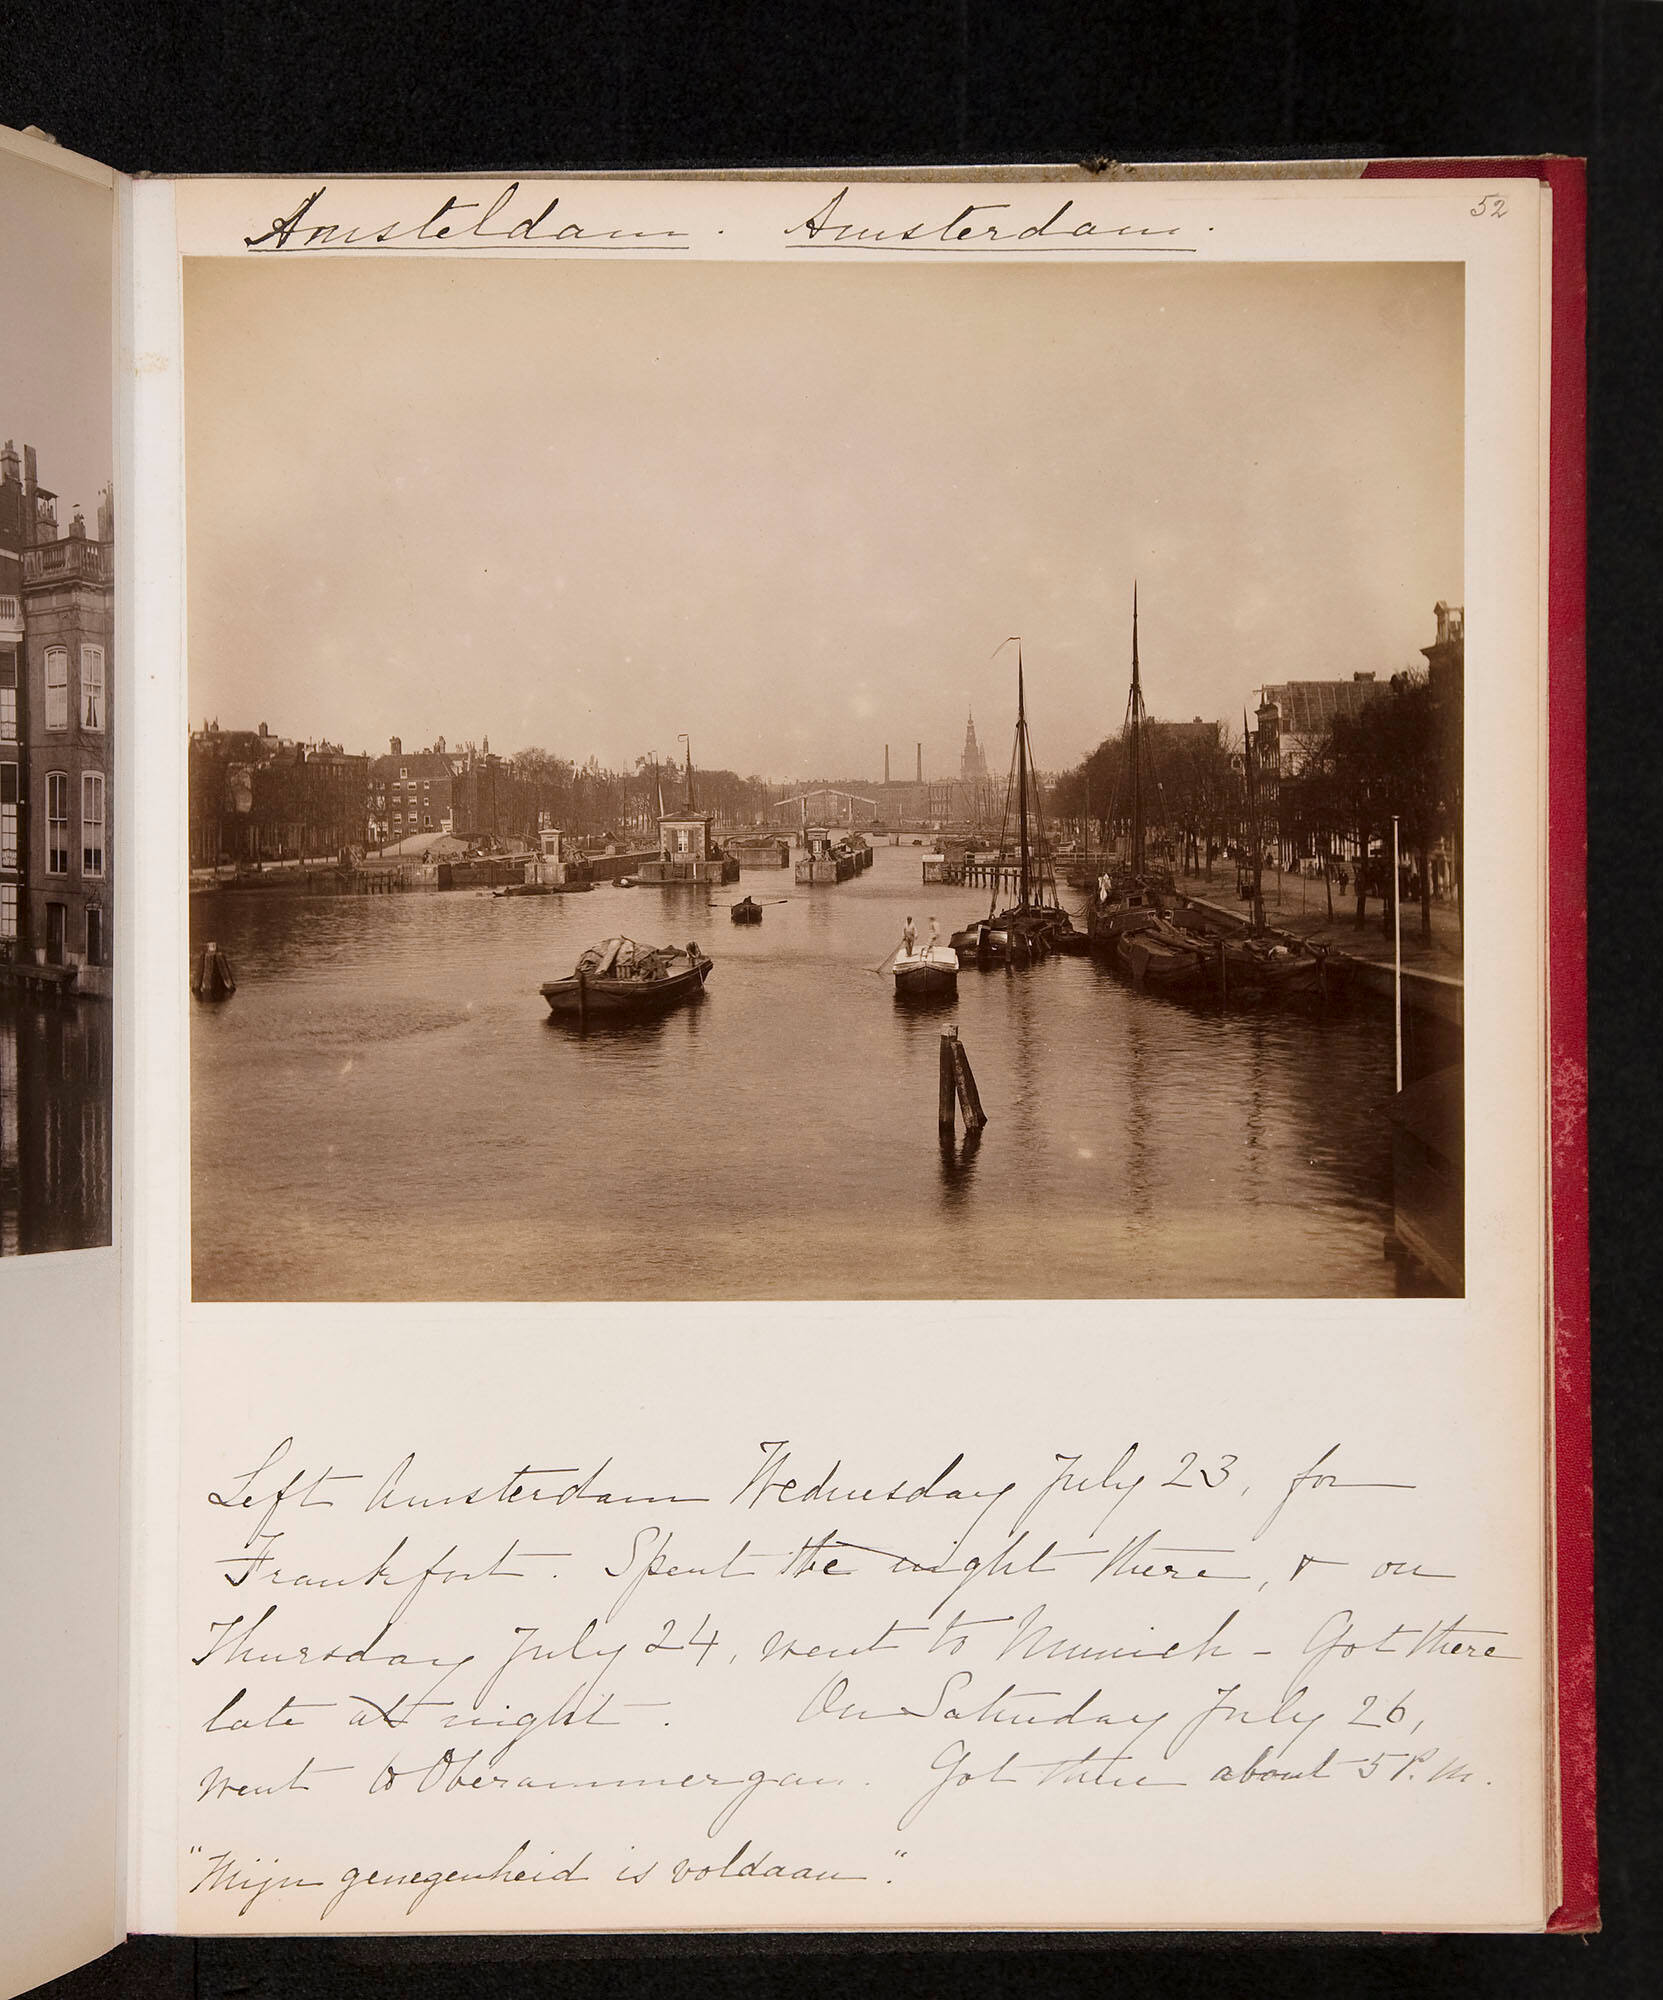 Amsteldam. Amsterdam.
52
Left Amsterdam Wednesday July 23, for
Frankfort. Spent the night there, & on
Thursday July 24, went to Munich - Got there
late at night. On Saturday July 26,
went to Oberammergau. Got there about 5 P.M.
"Mijn genegenheid is voldaan."